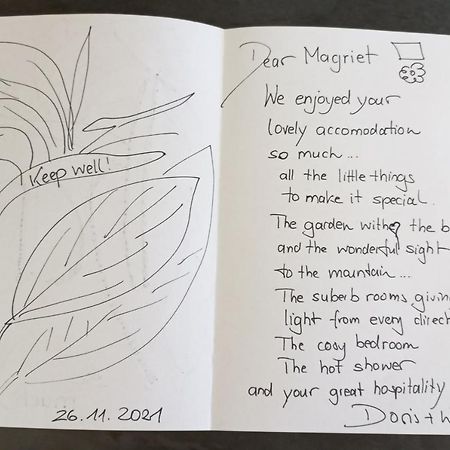 Keep well!
26.11.2021
Dear Magriet
We enjoyed your
lovely accomodation
so much...
all the little things
to make it special.
The garden with the b
and the wonderful sight
to the mountain...
The suberb rooms givin
light from every direct
The cosy bedroom
The hot shower
and your great hospitality
Doris +